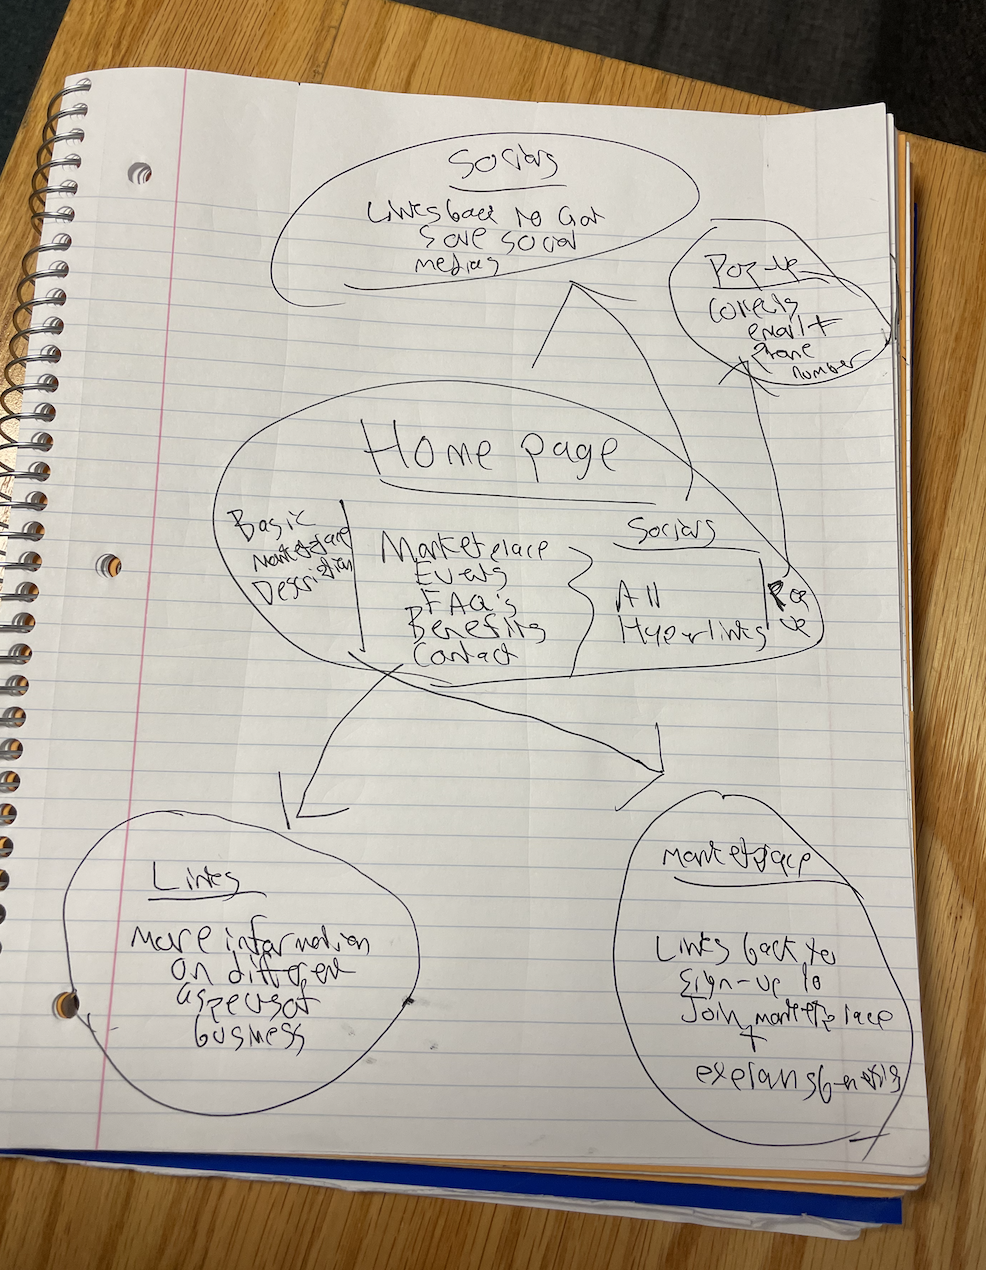 Socials
Links back to Got
Sole Social
medias
Pop-up
Collects
email +
phone
number
Home page
Basic
Marketplace
Description
Marketplace
Events
FAQ's
Benefits
Contact
Socials
All
Hyperlinks
Pop
up
Links
More information
on different
aspects of
business
Marketplace
Links back to
sign-up to
Join marketplace
+
explains benefits